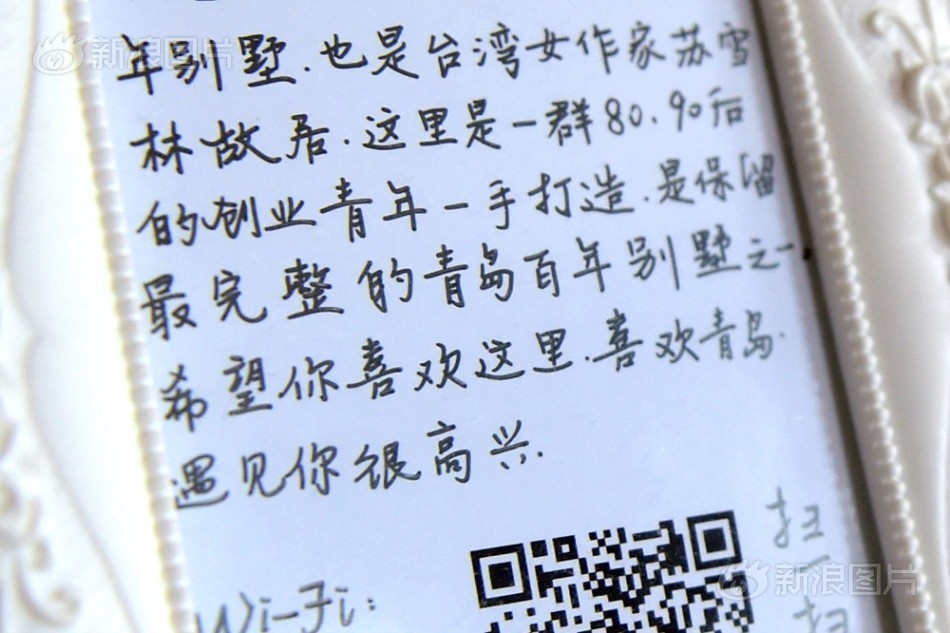 新浪图片
年别墅.也是台湾女作家苏雪
林故居.这里是一群80.90后
的创业青年一手打造.是保留
最完整的青岛百年别墅之一
希望你喜欢这里.喜欢青岛.
遇见你很高兴.
扫一扫
Wi-Fi:
新浪图片